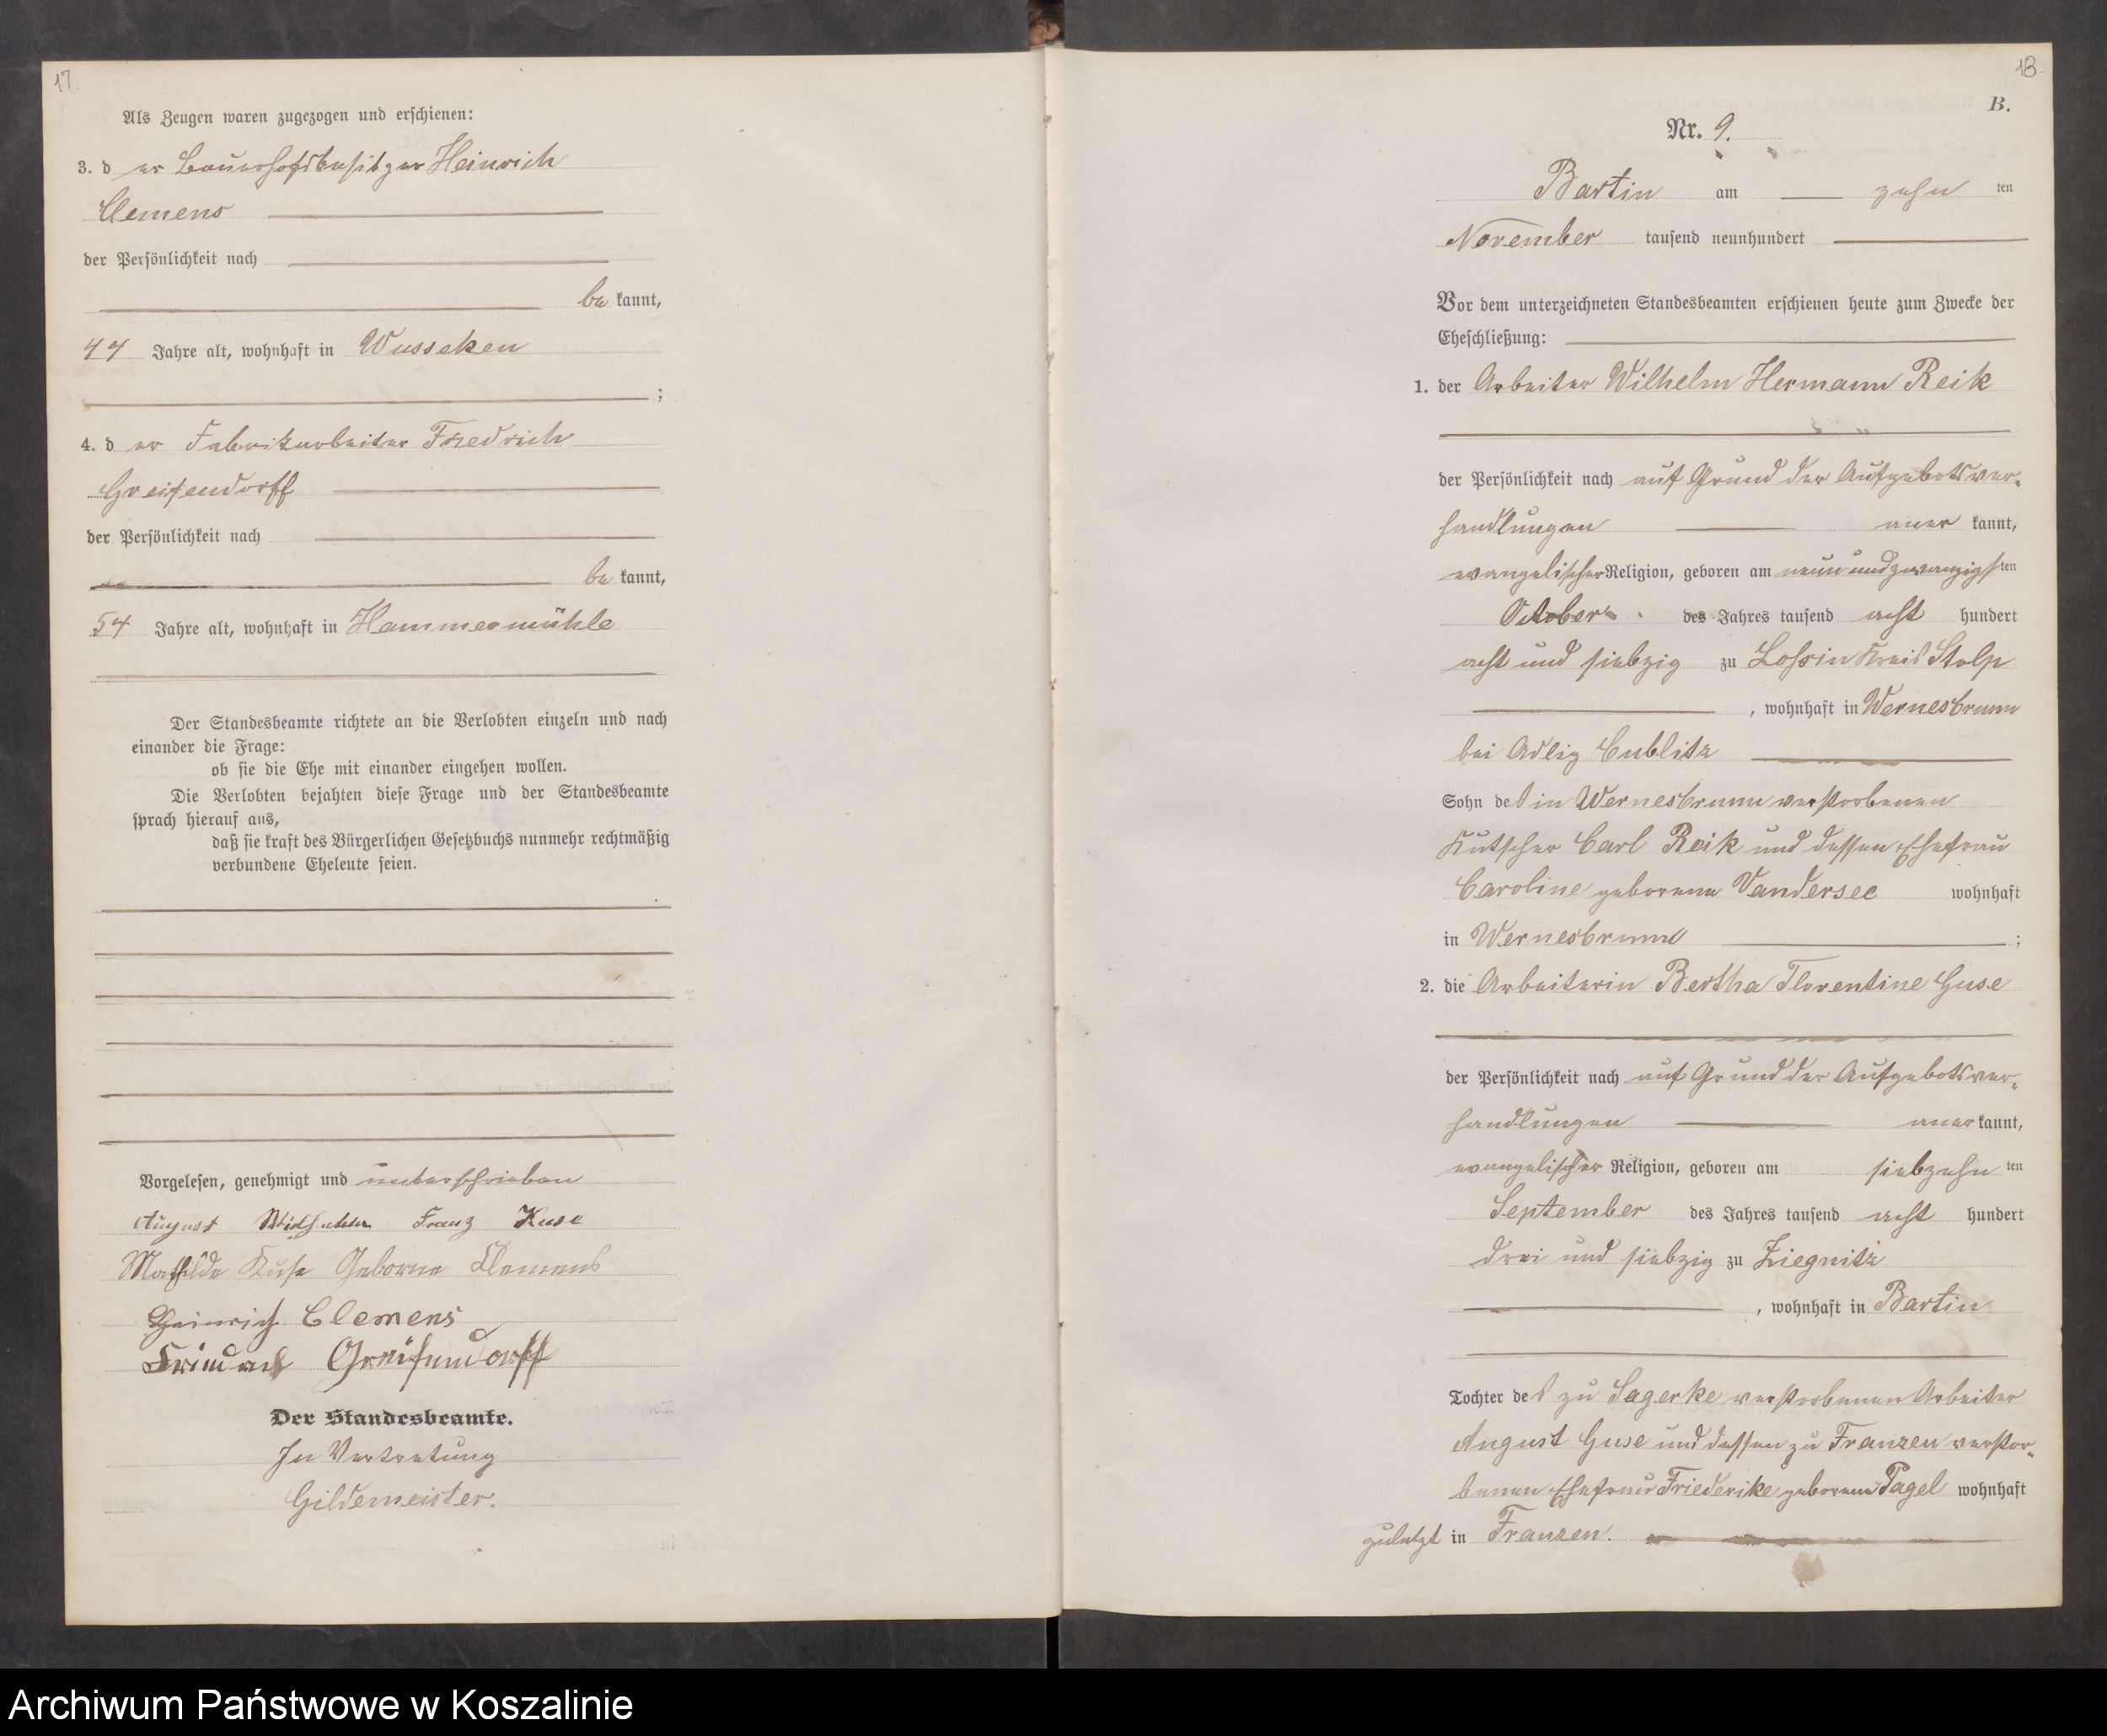 17.
Als Zeugen waren zugezogen und erschienen:
3. d er Bauerhofsbesitzer Heinrich
Clemens
der Persönlichkeit nach
be kannt,
47 Jahre alt, wohnhaft in Wusseken
;
4. d er Fabrikarbeiter Friedrich
Greifendorff
der Persönlichkeit nach
be kannt,
54 Jahre alt, wohnhaft in Hammermühle
Der Standesbeamte richtete an die Verlobten einzeln und nach
einander die Frage:
ob sie die Ehe mit einander eingehen wollen.
Die Verlobten bejahten diese Frage und der Standesbeamte
sprach hierauf aus,
daß sie kraft des Bürgerlichen Gesetzbuchs nunmehr rechtmäßig
verbundene Eheleute seien.
Vorgelesen, genehmigt und unterschrieben
August Franz Kuse
Mathilde Kuse Geborne Clemens
Heinrich Clemens
Friedrich Greifendorff
Der Standesbeamte.
In Vertretung
Gildemeister.
18.
B.
Nr. 9.
Bartin am zehn ten
November tausend neunhundert
Vor dem unterzeichneten Standesbeamten erschienen heute zum Zwecke der
Eheschließung:
1. der Arbeiter Wilhelm Hermann Reik
der Persönlichkeit nach auf Grund der Aufgebotsver-
handlungen aner kannt,
evangelischer Religion, geboren am neun und zwanzigsten
October des Jahres tausend acht hundert
acht und siebzig zu Lossin Kreis Stolp
, wohnhaft in Wernesbrunn
bei Adlig Cublitz
Sohn des in Wernesbrunn verstorbenen
Kutscher Carl Reik und dessen Ehefrau
Caroline geborene Vandersee wohnhaft
in Wernesbrunn ;
2. die Arbeiterin Bertha Florentine Guse
der Persönlichkeit nach auf Grund der Aufgebotsver-
handlungen aner kannt,
evangelischer Religion, geboren am siebzehn ten
September des Jahres tausend acht hundert
drei und siebzig zu Ziegnitz
, wohnhaft in Bartin
Tochter des zu Sagerke verstorbenen Arbeiter
August Guse und dessen zu Franzen verstor-
benen Ehefrau Friederike geborene Pagel wohnhaft
zuletzt in Franzen.
Archiwum Państwowe w Koszalinie